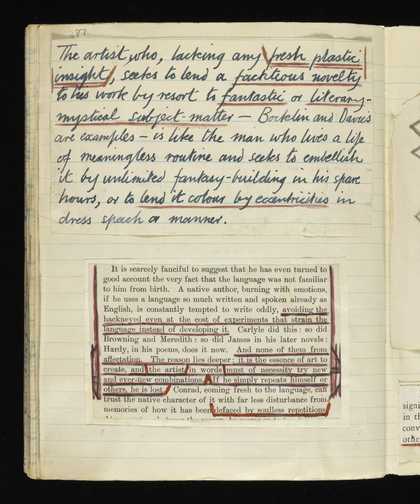 The artist who, lacking any fresh plastic
insight, seeks to lend a facktious novelty
to his work by resort to fantastic or literary-
mystical subject-matter – Bocklin and Davies
are examples – is like the man who lives a life
of meaningless routine and seeks to embellish
it by unlimited fantasy-building in his spare
hours, or to lend it colour by eccentricities in
dress speach or manner.
It is scarcely fanciful to suggest that he has even turned to
good account the very fact that the language was not familiar
to him from birth. A native author, burning with emotions,
if he uses a language so much written and spoken already as
English, is constantly tempted to write oddly, avoiding the
hackneyed even at the cost of experiments that strain the
language instead of developing it. Carlyle did this: so did
Browning and Meredith: so did James in his later novels:
Hardy, in his poems, does it now. And none of them from
affectation. The reason lies deeper: it is the essence of art to
create, and the artist in words must of necessity try new
and ever-new combinations. If he simply repeats himself or
others, he is lost. Conrad, coming fresh to the language, can
trust the native character of it with far less disturbance from
memories of how it has been defaced by soulless repetitions
signi
in th
conv
othe